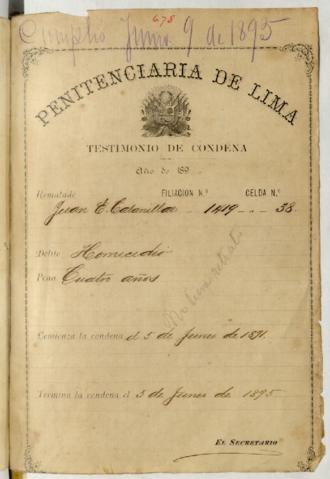 678
Cumplió Junio 9 de 1895
PENITENCIARIA DE LIMA
TESTIMONIO DE CONDENA
Año de 189
Rematado FILIACION N.º CELDA N.º
Juan E. 1419 38
Delito Homicidio
Pena Cuatro años
No tiene retrato
Comienza la condena el 5 de Junio de 1891.
Termina la condena el 5 de Junio de 1895
EL SECRETARIO